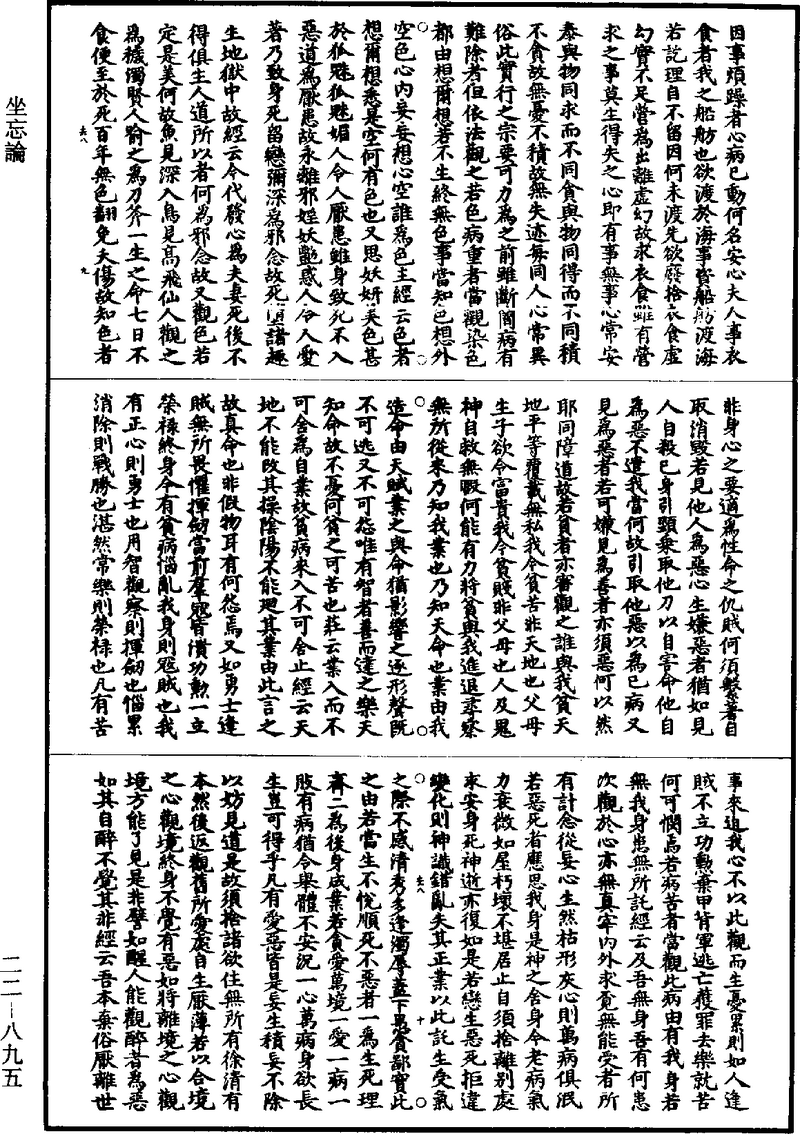 因事煩躁者心病已動何名安心夫人事衣
食者我之船舫也欲渡於海事資船舫渡海
若訖理自不留因何未渡先欲廢捨衣食虛
幻實不足營為出離虛幻故求衣食雖有營
求之事莫生得失之心即有事無事心常安
泰與物同求而不同貪與物同得而不同積
不貪故無憂不積故無失迹每同人心常異
俗此實行之宗要可力為之前雖斷簡病有
難除者但依法觀之若色病重者當觀染色
都由想爾想若不生終無色事當知色想外
空色心內妄妄想心空誰為色主經云色者
想爾想悉是空何有色也又思妖妍美色甚
於狐魅狐魅媚人令人厭患雖身致死不入
惡道為厭患故永離邪婬妖艷惑人令人愛
著乃致身死留戀彌深為邪念故死墮諸趣
生地獄中故經云今代發心為夫妻死後不
得俱生人道所以者何為邪念故又觀色若
定是美何故魚見深入鳥見高飛仙人觀之
為穢濁賢人喻之為刀斧一生之命七日不
食便至於死百年無色翻免夭傷故知色者
去八
九
非身心之要適為性命之仇賊何須繫著自
取消毀若見他人為惡心生嫌惡者猶如見
人自殺己身引頸乘取他刀以自害命他自
為惡不遣我當何故引取他惡以為己病又
見為惡者若可嫌見為善者亦須惡何以然
耶同障道故若貧者亦審觀之誰與我貧天
地平等覆載無私我今貧苦非天地也父母
生子欲令富貴我今貧賤非父母也人及鬼
神自救無暇何能有力將貧與我進退尋察
無所從來乃知我業也乃知天命也業由我
造命由天賦業之與命猶影響之逐形聲既
不可逃又不可怨唯有智者善而達之樂天
知命故不憂何貧之可苦也莊云業入而不
可舍為自業故貧病來入不可舍止經云天
地不能改其操陰陽不能迴其業由此言之
故真命也非假物耳有何怨焉又如勇士逢
賊無所畏懼揮劒當前群寇皆潰功勲一立
榮祿終身今有貧病惱亂我身則寇賊也我
有正心則勇士也用智觀察則揮劒也惱累
消除則戰勝也湛然常樂則榮祿也凡有苦
事來迫我心不以此觀而生憂累則如人逢
賊不立功勲棄甲背軍逃亡獲罪去樂就苦
何可憫焉若病苦者當觀此病由有我身若
無我身患無所託經云及吾無身吾有何患
次觀於心亦無真宰內外求覓無能受者所
有計念從妄心生然枯形灰心則萬病俱泯
若惡死者應思我身是神之舍身今老病氣
力衰微如屋朽壞不堪居止自須捨離別處
求安身死神逝亦復如是若戀生惡死拒違
變化則神識錯亂失其正業以此託生受氣
去八
十
之際不感清秀多逢濁辱蓋下愚貪鄙實此
之由若當生不悅順死不惡者一為生死理
齊二為後身成業若貪愛萬境一愛一病一
肢有病猶令舉體不安況一心萬病身欲長
生豈可得乎凡有愛惡皆是妄生積妄不除
以妨見道是故須捨諸欲住無所有徐清有
本然後返觀舊所愛處自生厭薄若以合境
之心觀境終身不覺有惡如將離境之心觀
境方能了見是非譬如醒人能觀醉者為惡
如其自醉不覺其非經云吾本棄俗厭離世
坐忘論
二二—八九五